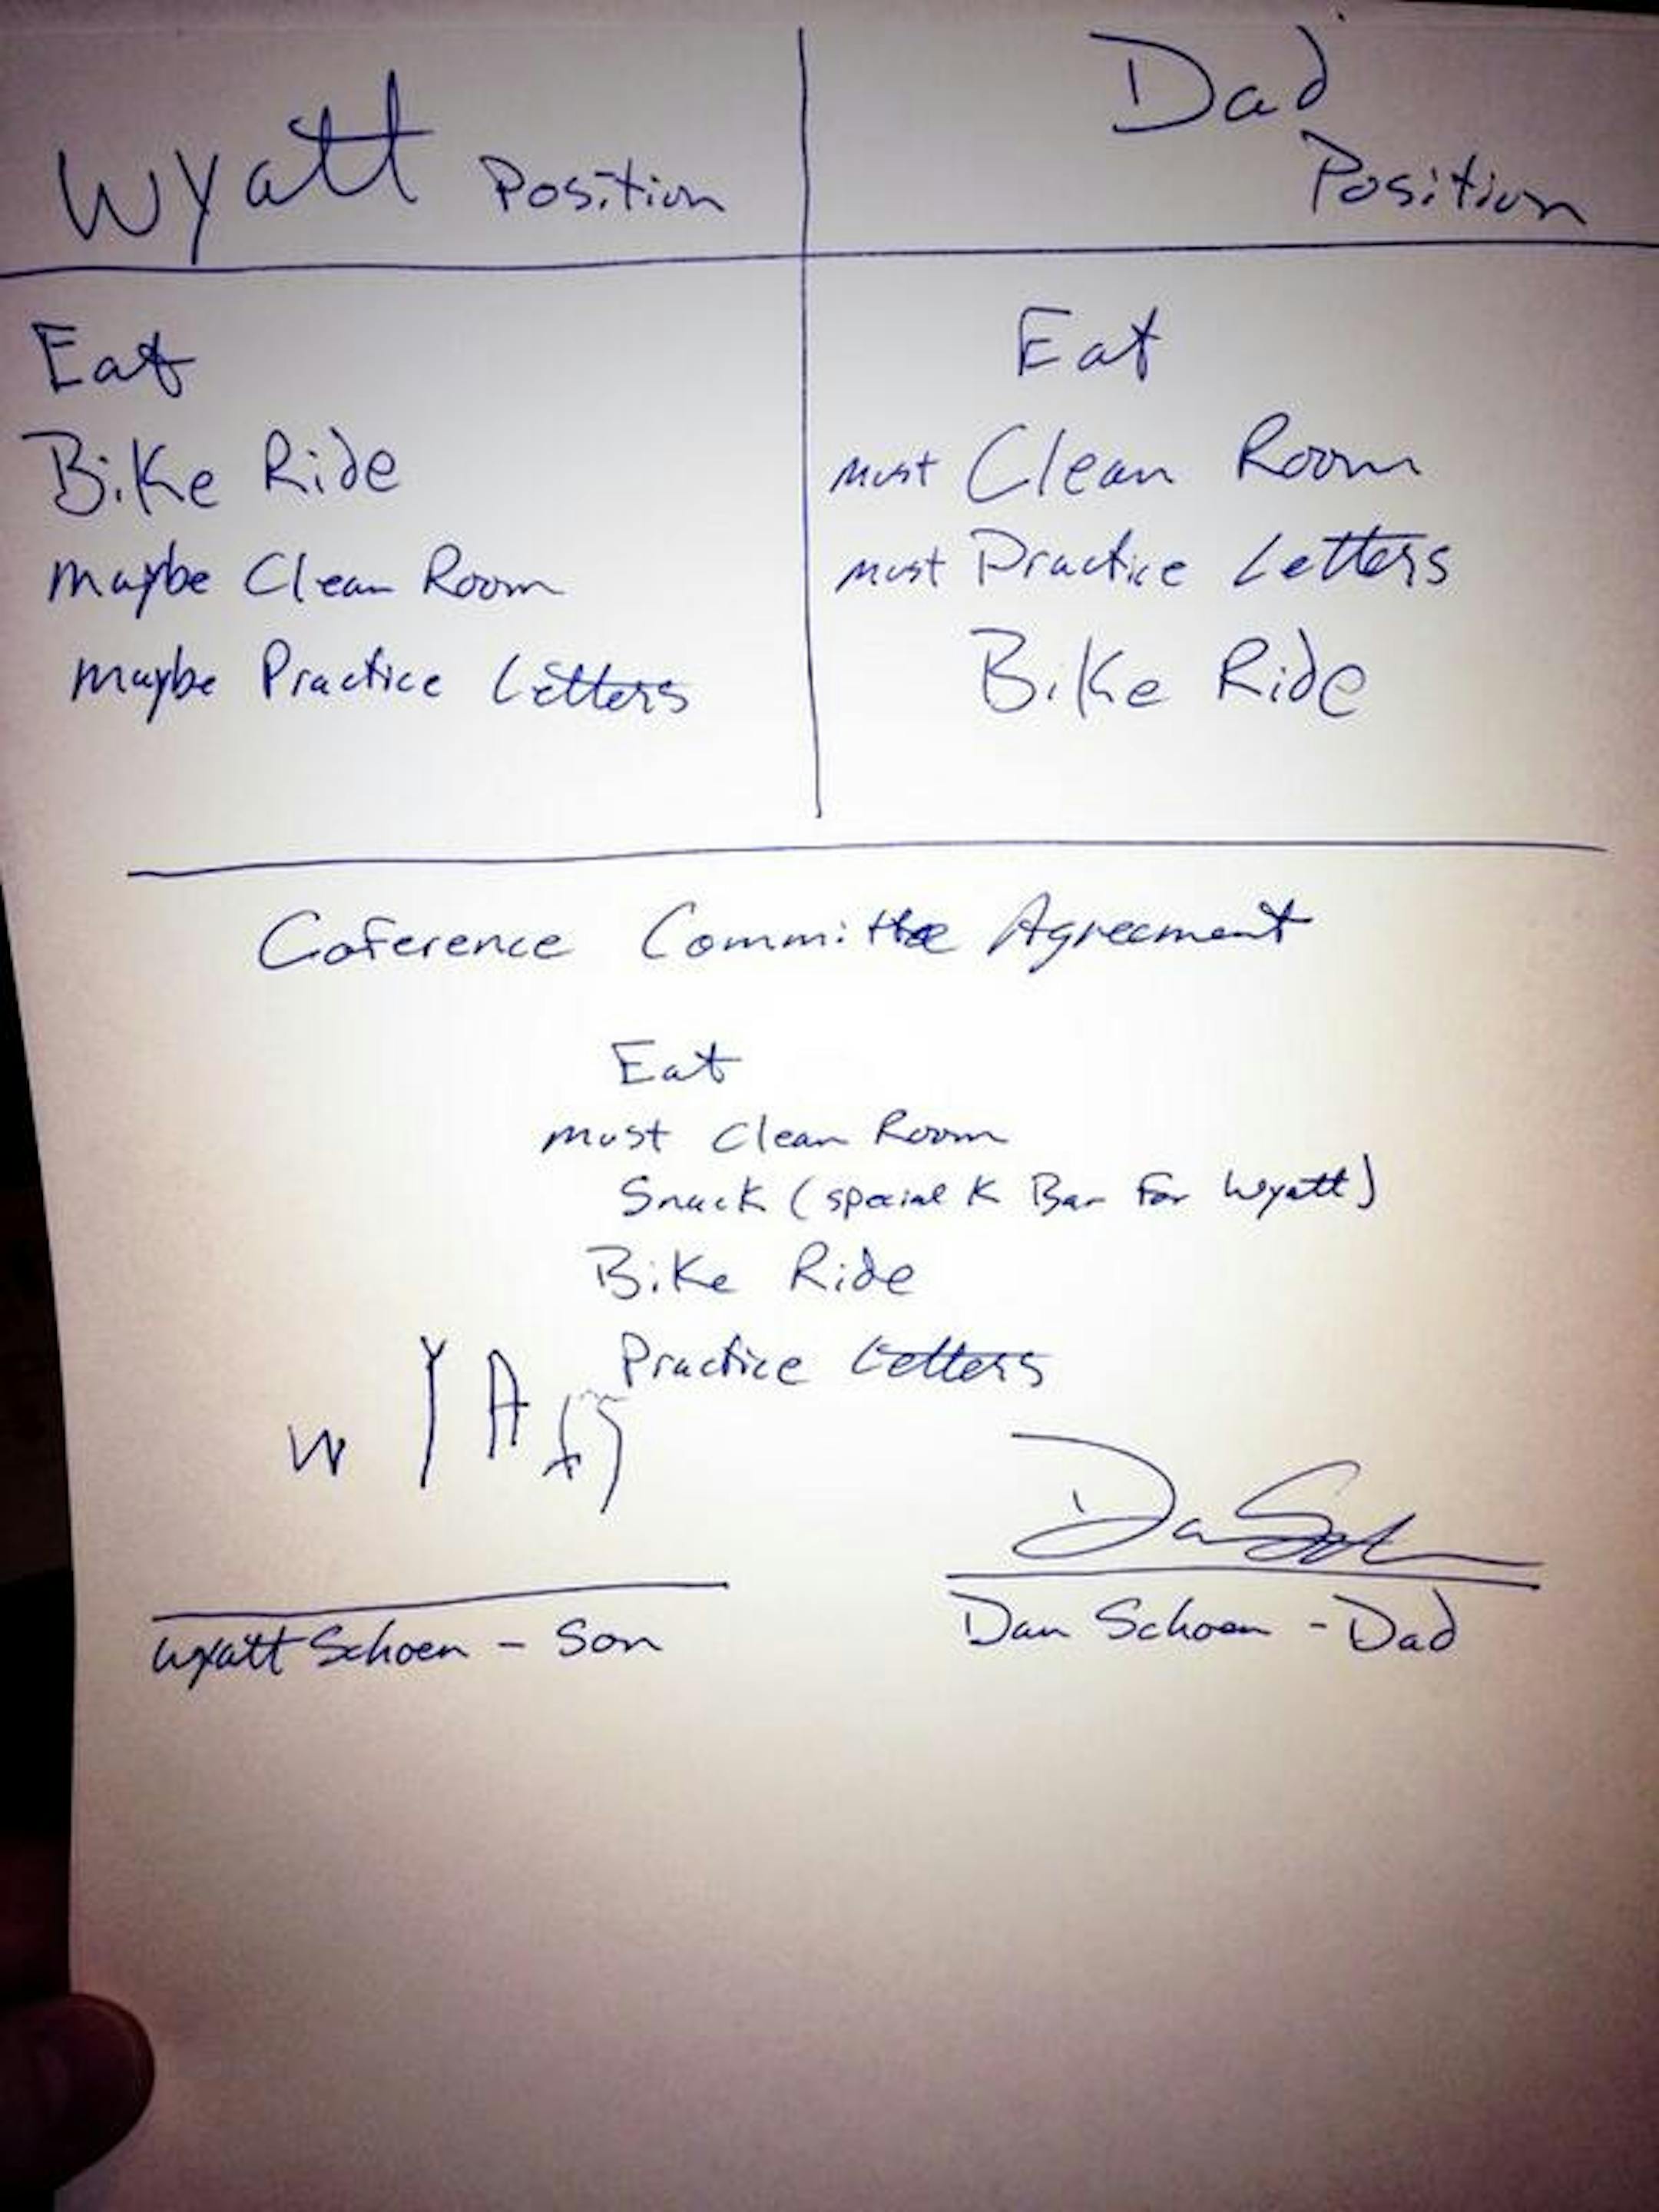 Wyatt Position
Dad
Position
Eat
Bike Ride
maybe Clean Room
maybe Practice Letters
Eat
must Clean Room
must Practice Letters
Bike Ride
Coference Committee Agreement
Eat
must Clean Room
Snack (special K Bar for Wyatt)
Bike Ride
Practice Letters
W Y A
Wyatt Schoen - Son
Dan Schoen - Dad